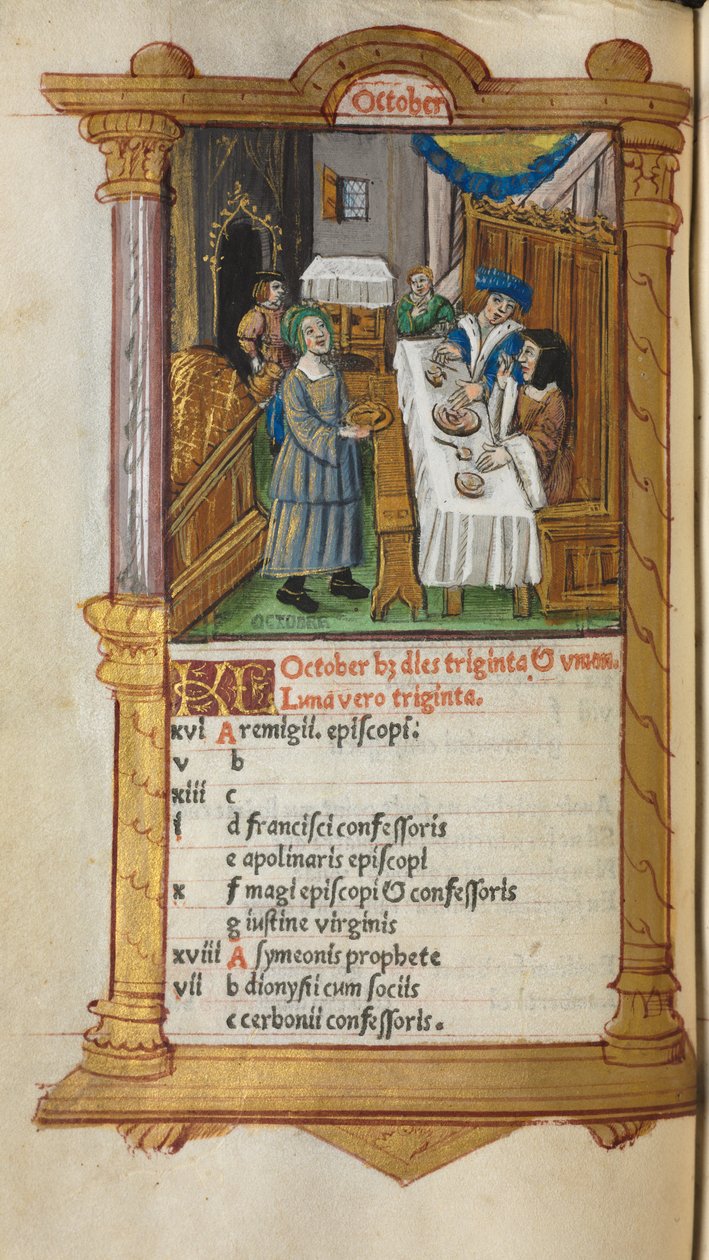 October
OCTOBRR
KL October bꝫ dies triginta & vnum.
Luna vero triginta.
xvi A remigii. episcopi:
v b
xiii c
i d francisci confessoris
e apolinaris episcopi
x f magi episcopi & confessoris
g iustine virginis
xviii A symeonis prophete
vii b dionysii cum sociis
c cerbonii confessoris.